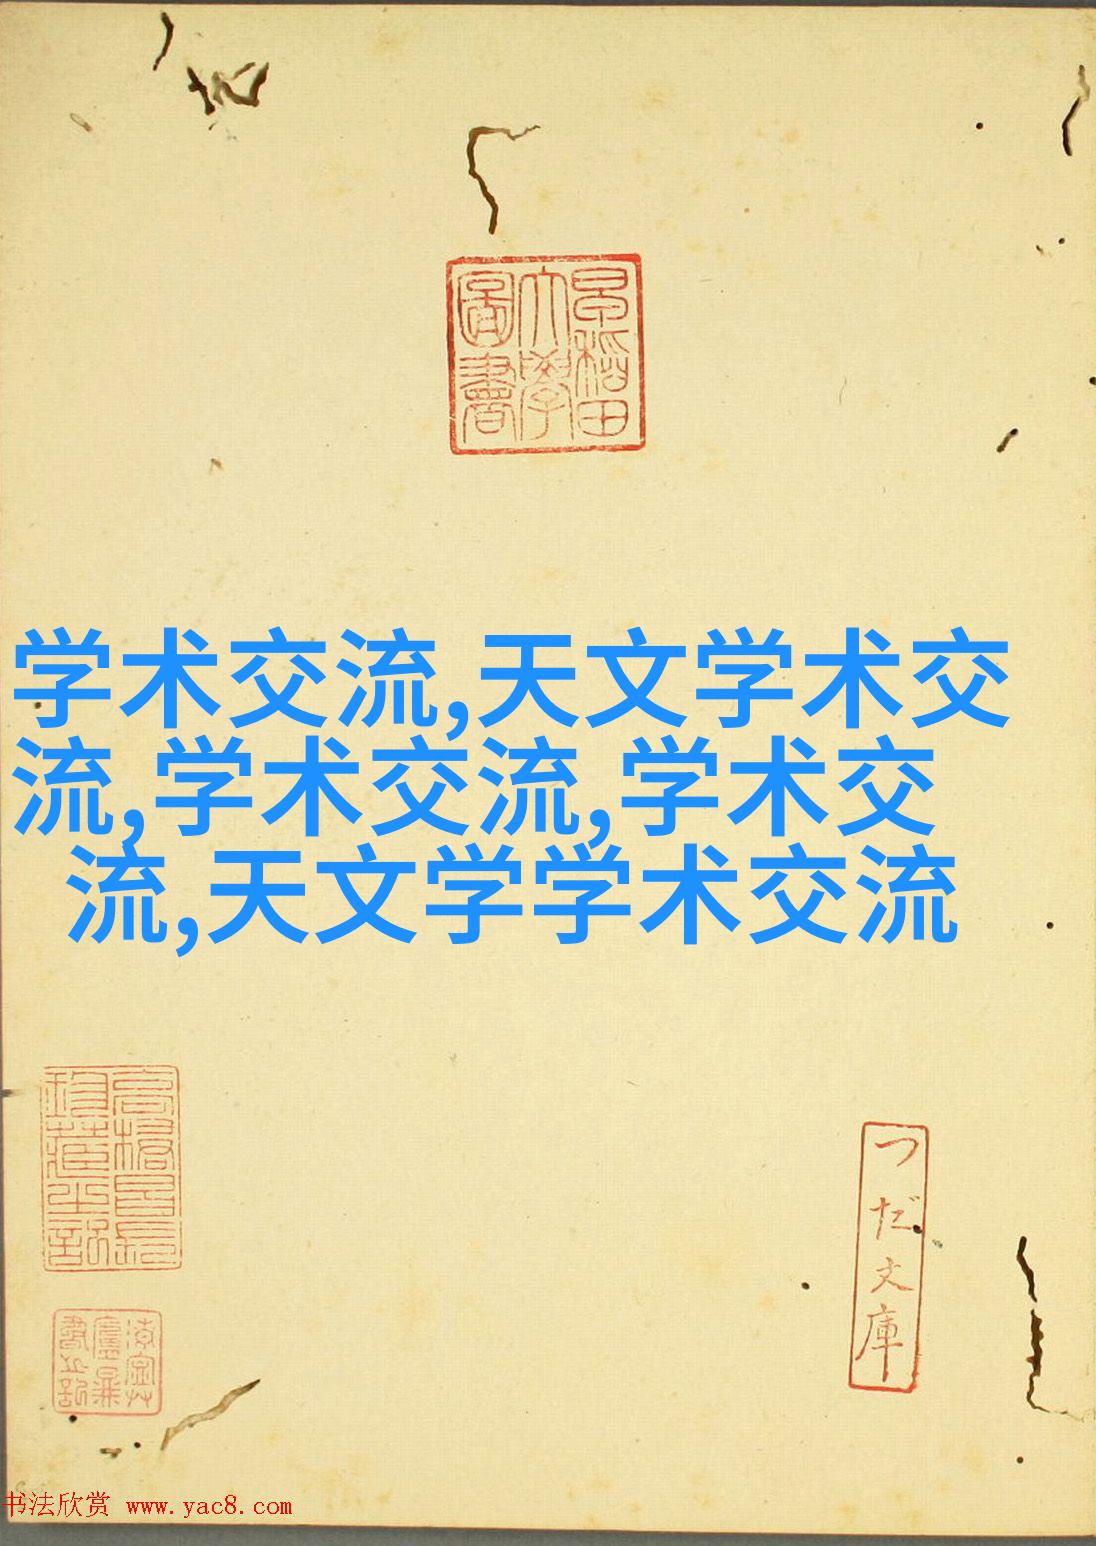 早稲田
大學
圖書
学术交流,天文学术交
流,学术交流,学术交
流,天文学学术交流
つだ文庫
书法欣赏 www.yac8.com